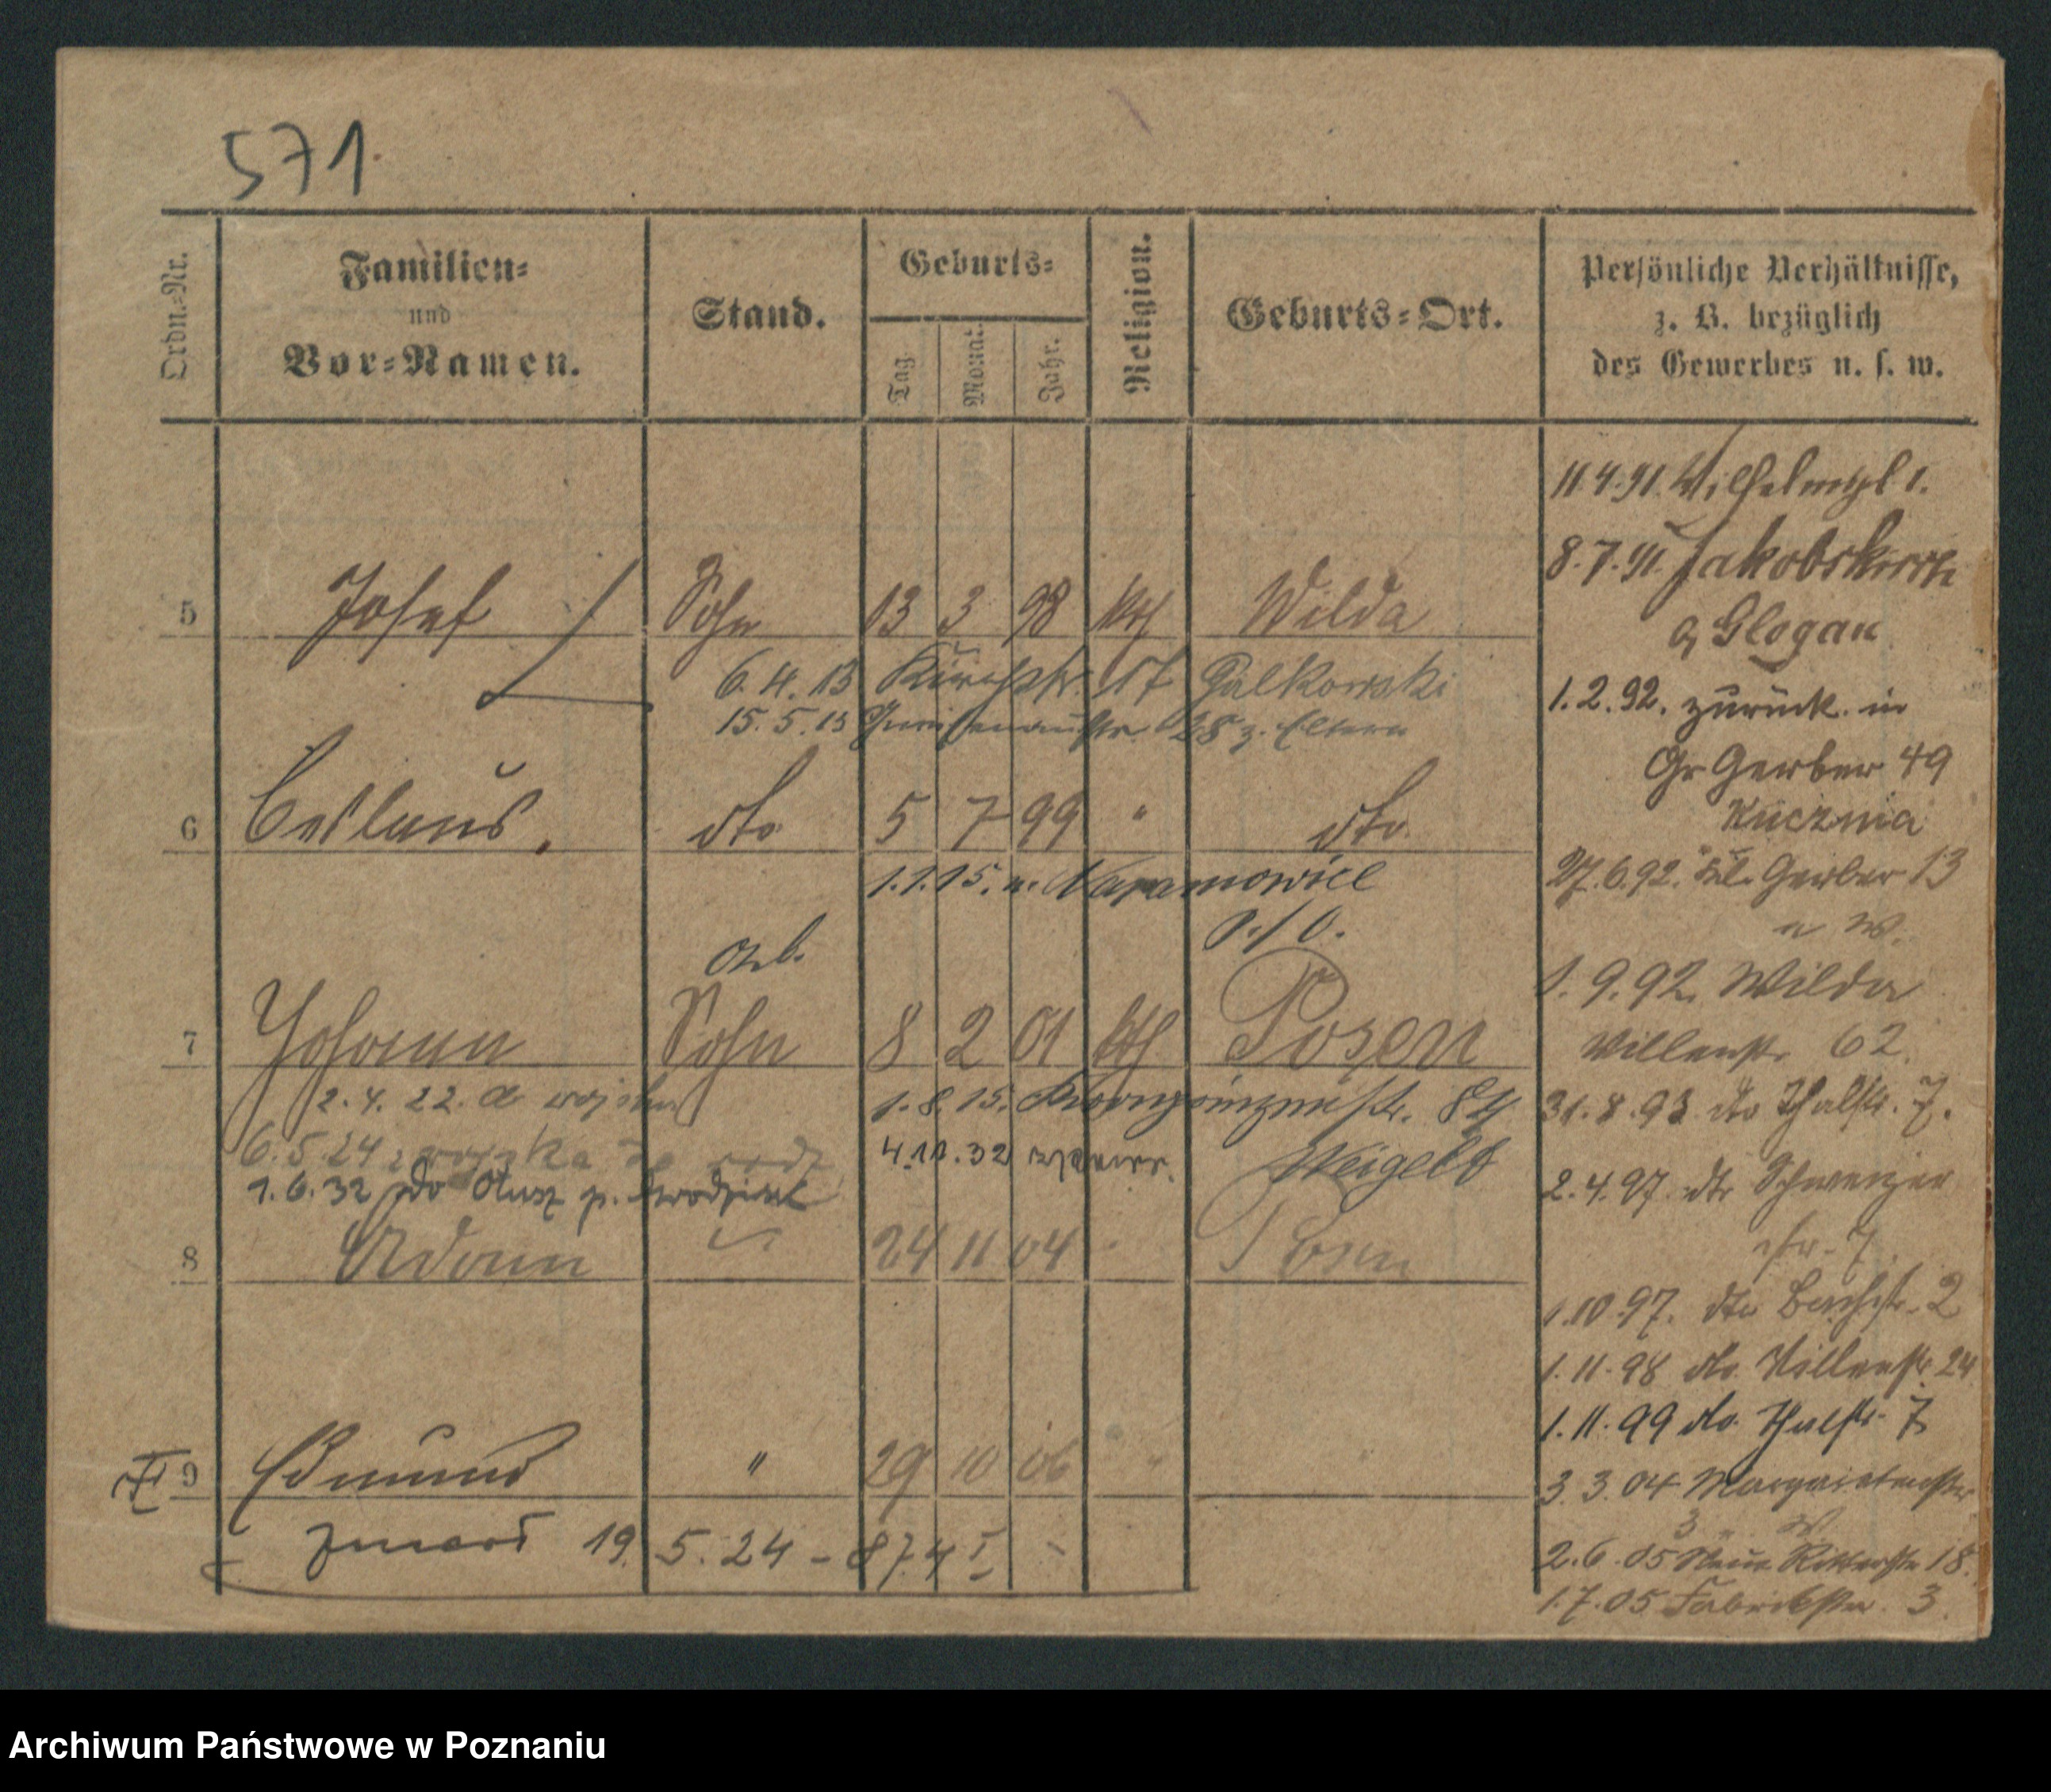 571
Ordn.-Nr.
Familien-
und
Vor-Namen.
Stand.
Geburts-
Tag.
Monat.
Jahr.
Religion.
Geburts-Ort.
Persönliche Verhältnisse,
z. B. bezüglich
des Gewerbes u. s. w.
5 Josef Sohn 13 3 98 kth Wilda
6.4.13 Kirchstr. 17 Galkowski
15.5.13 Gneisenaustr. 28 z. Eltern
6 Ceslaus. dto 5 7 99 " dto
1.1.15. n. Naramowice
P./O.
Arb.
7 Johann Sohn 8 2 01 kth Posen
2.4.22. do wojska
1.8.15. Kronprinzenstr. 84
6.5.24 z wojska
4.10.32
Weigelt
1.6.32 do Otusz p.
8 Adam 24 11 04 Posen
9 Edmund " 29 10 06 "
19.5.24 - 874 I
11.4.91. Wilhelmspl 1.
8.7.91. Jakobskirche
Glogau
1.2.92. zurück in
Gr Gerber 49
Kucznia
27.6.92. Kl. Gerber 13
n W.
1.9.92. Wilda
Villenstr 62.
31.8.93 dto Thalstr. 7.
2.4.97. dto
str. 7.
1.10.97. dto Bachstr. 2
1.11.98 dto. Villenstr 24
1.11.99 dto. Thalstr. 7
3.3.04 Margaretenstr
3 W
2.6.05 Neue Ritterstr 18.
1.7.05 Fabrikstr. 3.
Archiwum Państwowe w Poznaniu